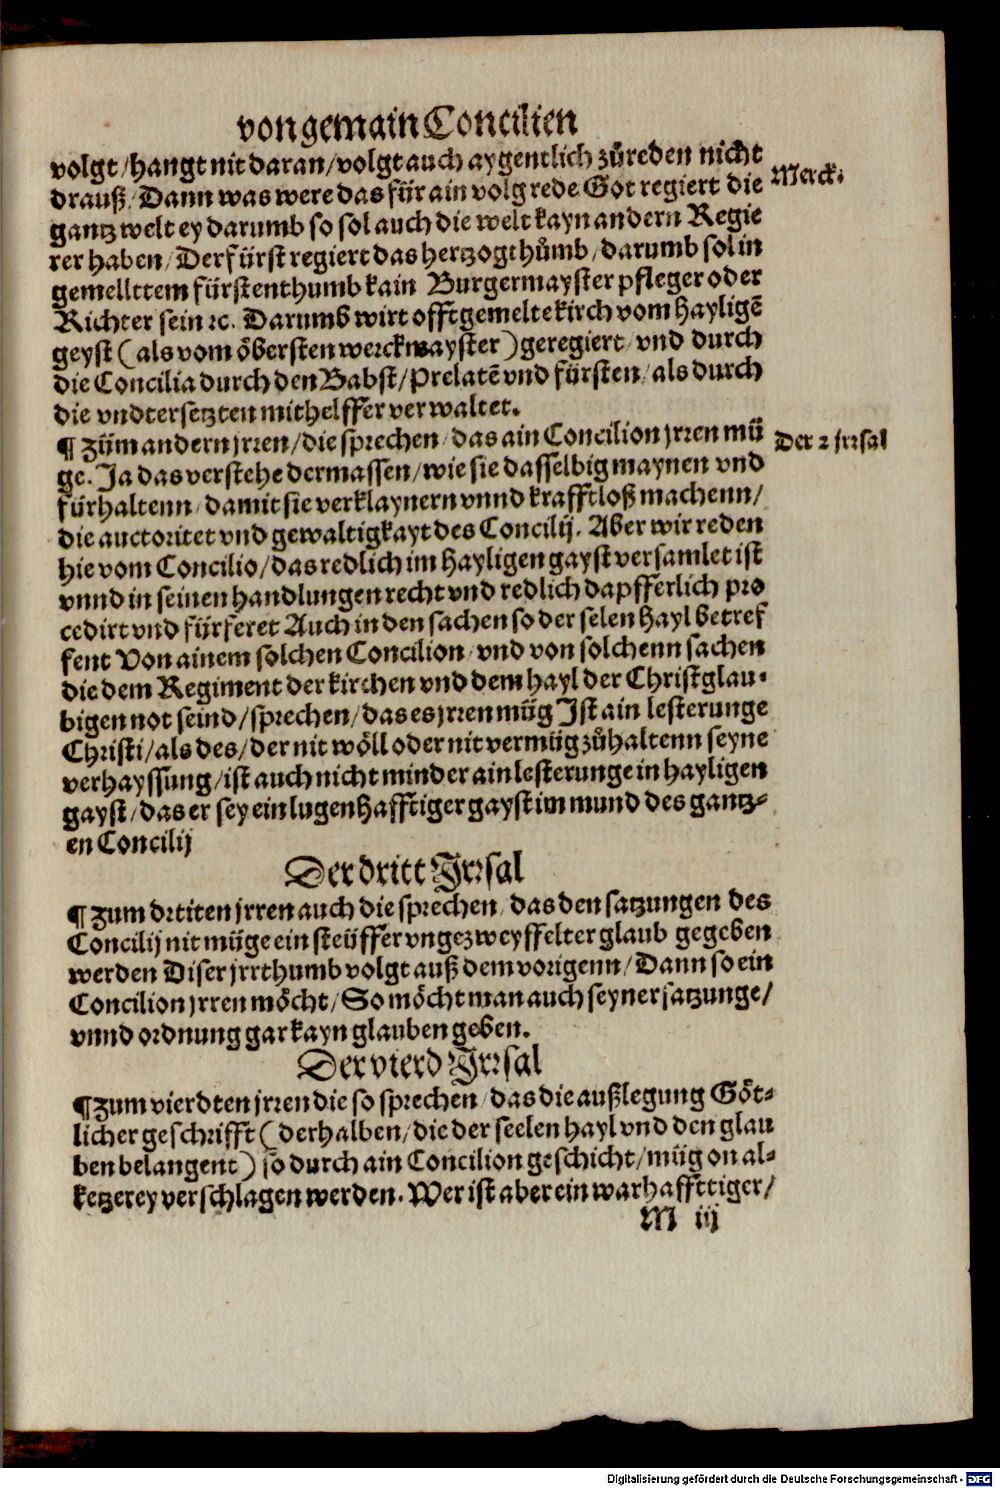 von gemain Concilien
volgt / hangt nit daran / volgt auch aygentlich zůreden nicht
drauß / Dann was were das für ain volg rede Got regiert die
Merck:
gantz welt ey darumb so sol auch die welt kayn andern Regie
rer haben / Der fürst regiert das hertzogthůmb / darumb sol in
gemellttem fürstenthumb kain Burgermayster pfleger oder
Richter sein ꝛc. Darumb wirt offt gemelte kirch vom hayligẽ
geyst ( als vom öbersten werckmayster ) geregiert / vnd durch
die Concilia durch den Babst / Prelatẽ vnd fürsten / als durch
die vndtersetzten mithelffer verwaltet.
¶ Zům andern jrren / die sprechen / das ain Concilion jrren mü
Der 2 jrrsal
ge. Ja das verstehe dermassen / wie sie dasselbig maynen vnd
fürhaltenn / damit sie verklaynern vnnd krafftloß machenn /
die auctoritet vnd gewaltigkayt des Concilij. Aber wir reden
hie vom Concilio / das redlich im hayligen gayst versamlet ist
vnnd in seinen handlungen recht vnd redlich dapfferlich pro
cedirt vnd fürferet Auch in den sachen so der selen hayl betref
fent Von ainem solchen Concilion / vnd von solchenn sachen
die dem Regiment der kirchen vnd dem hayl der Christglau-
bigen not seind / sprechen / das es jrren müg Ist ain lesterunge
Christi / als des / der nit wöll oder nit vermüg zůhaltenn seyne
verhayssung / ist auch nicht minder ain lesterunge in hayligen
gayst / das er sey ein lugenhafftiger gayst im mund des gantz-
en Concilij
Der dritt Jrrsal
¶ Zum drtiten jrren auch die sprechen / das den satzungen des
Concilij nit müge ein steüffer vngezweyffelter glaub gegeben
werden Diser jrrthumb volgt auß dem vorigenn / Dann so ein
Concilion jrren möcht / So möcht man auch seyner satzunge /
vnnd ordnung gar kayn glauben geben.
Der vierd Jrrsal
¶ Zum vierdten jrren die so sprechen / das die außlegung Göt-
licher geschrifft ( derhalben / die der seelen hayl vnd den glau
ben belangent ) so durch ain Concilion geschicht / müg on al-
ketzerey verschlagen werden. Wer ist aber ein warhaffttiger /
M iij
Digitalisierung gefördert durch die Deutsche Forschungsgemeinschaft - DFG